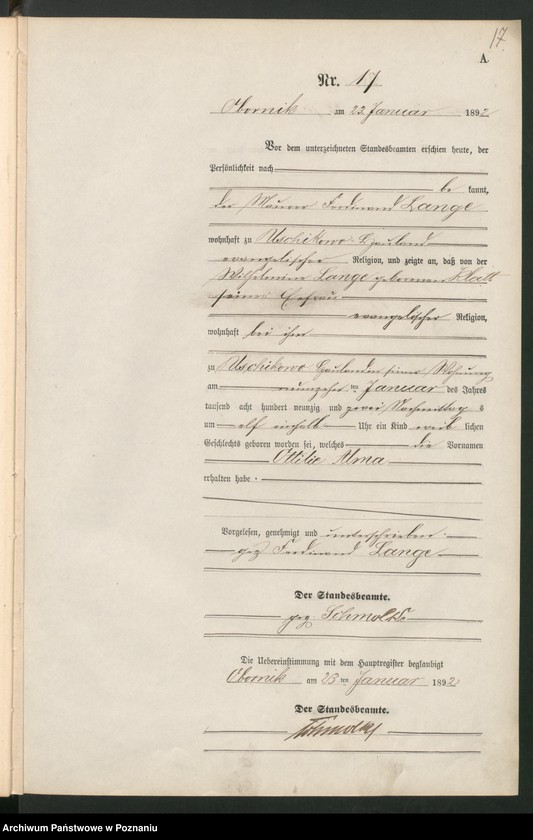 17
A
Nr. 17
Obornik am 23. Januar 1892
Vor dem unterzeichneten Standesbeamten erschien heute, der
Persönlichkeit nach
be kannt,
der Maurer Ferdinand Lange
wohnhaft zu Uschikowo Hauland
evangelischer Religion, und zeigte an, daß von der
Wilhelmine Lange geborenen Klatt
seiner Ehefrau
evangelischer Religion,
wohnhaft bei ihm
zu Uschikowo Hauland in seiner Wohnung
am neunzehn ten Januar des Jahres
tausend acht hundert neunzig und zwei Nachmittag s
um elf einhalb Uhr ein Kind weib lichen
Geschlechts geboren worden sei, welches die Vornamen
Ottilie Alma
erhalten habe.
Vorgelesen, genehmigt und unterschrieben
gez. Ferdinand Lange
Der Standesbeamte.
gez. Schmolke
Die Uebereinstimmung mit dem Hauptregister beglaubigt
Obornik am ten Januar 1892
Der Standesbeamte.
Schmolke
Archiwum Państwowe w Poznaniu